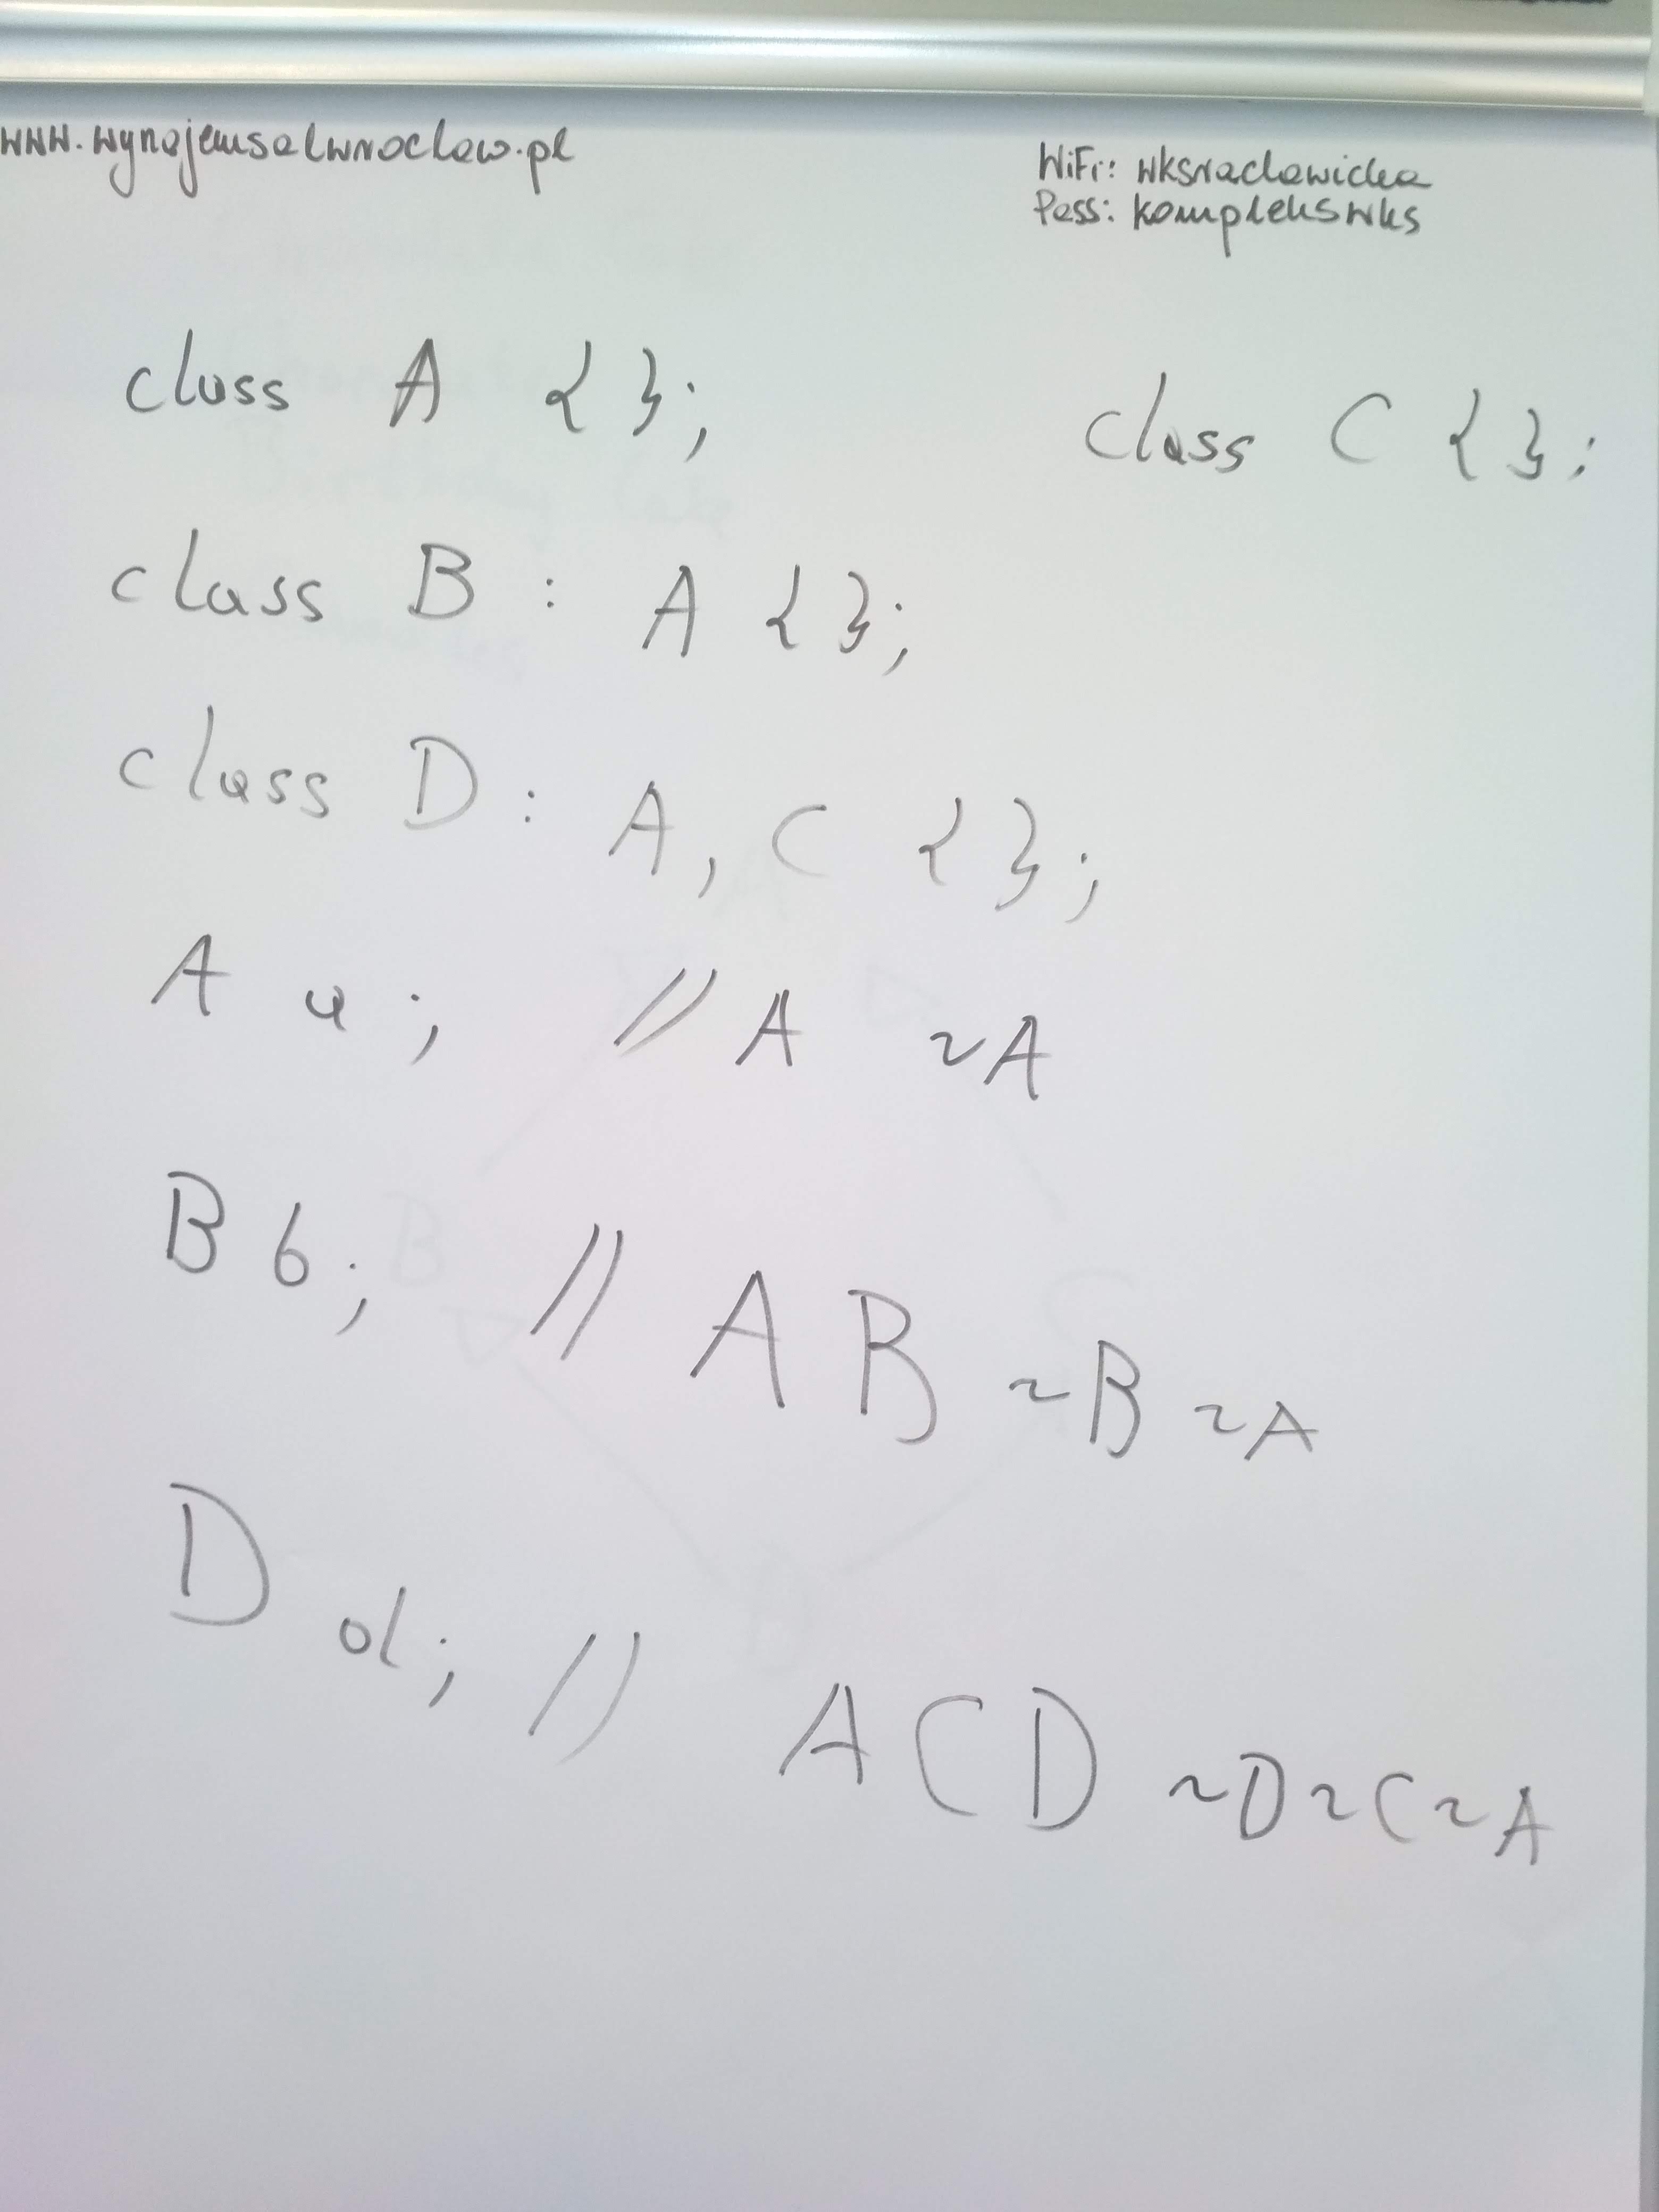 www.wynajemsalwroclaw.pl
WiFi: wksraclawicka
Pass: komplekswks
class A { };
class C { };
class B : A { };
class D : A, C { };
A a; // A ~A
B b; // A B ~B ~A
D d; // A C D ~D ~C ~A